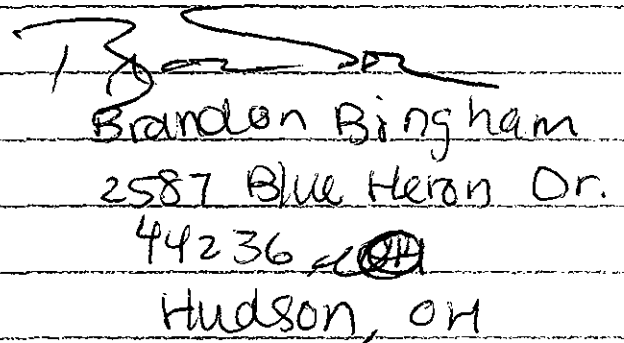 Brandon Bingham
2587 Blue Heron Dr.
44236
Hudson, OH